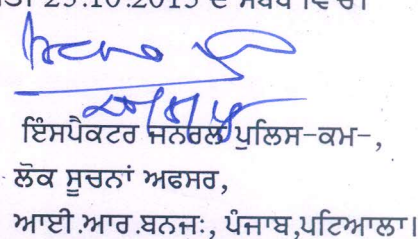 23.10.2015 ਦੇ ਸਬੰਧ ਵਿੱਚ।
ਇੰਸਪੈਕਟਰ ਜਨਰਲ ਪੁਲਿਸ-ਕਮ-,
ਲੋਕ ਸੂਚਨਾਂ ਅਫਸਰ,
ਆਈ.ਆਰ.ਬਨਜ:, ਪੰਜਾਬ,ਪਟਿਆਲਾ।